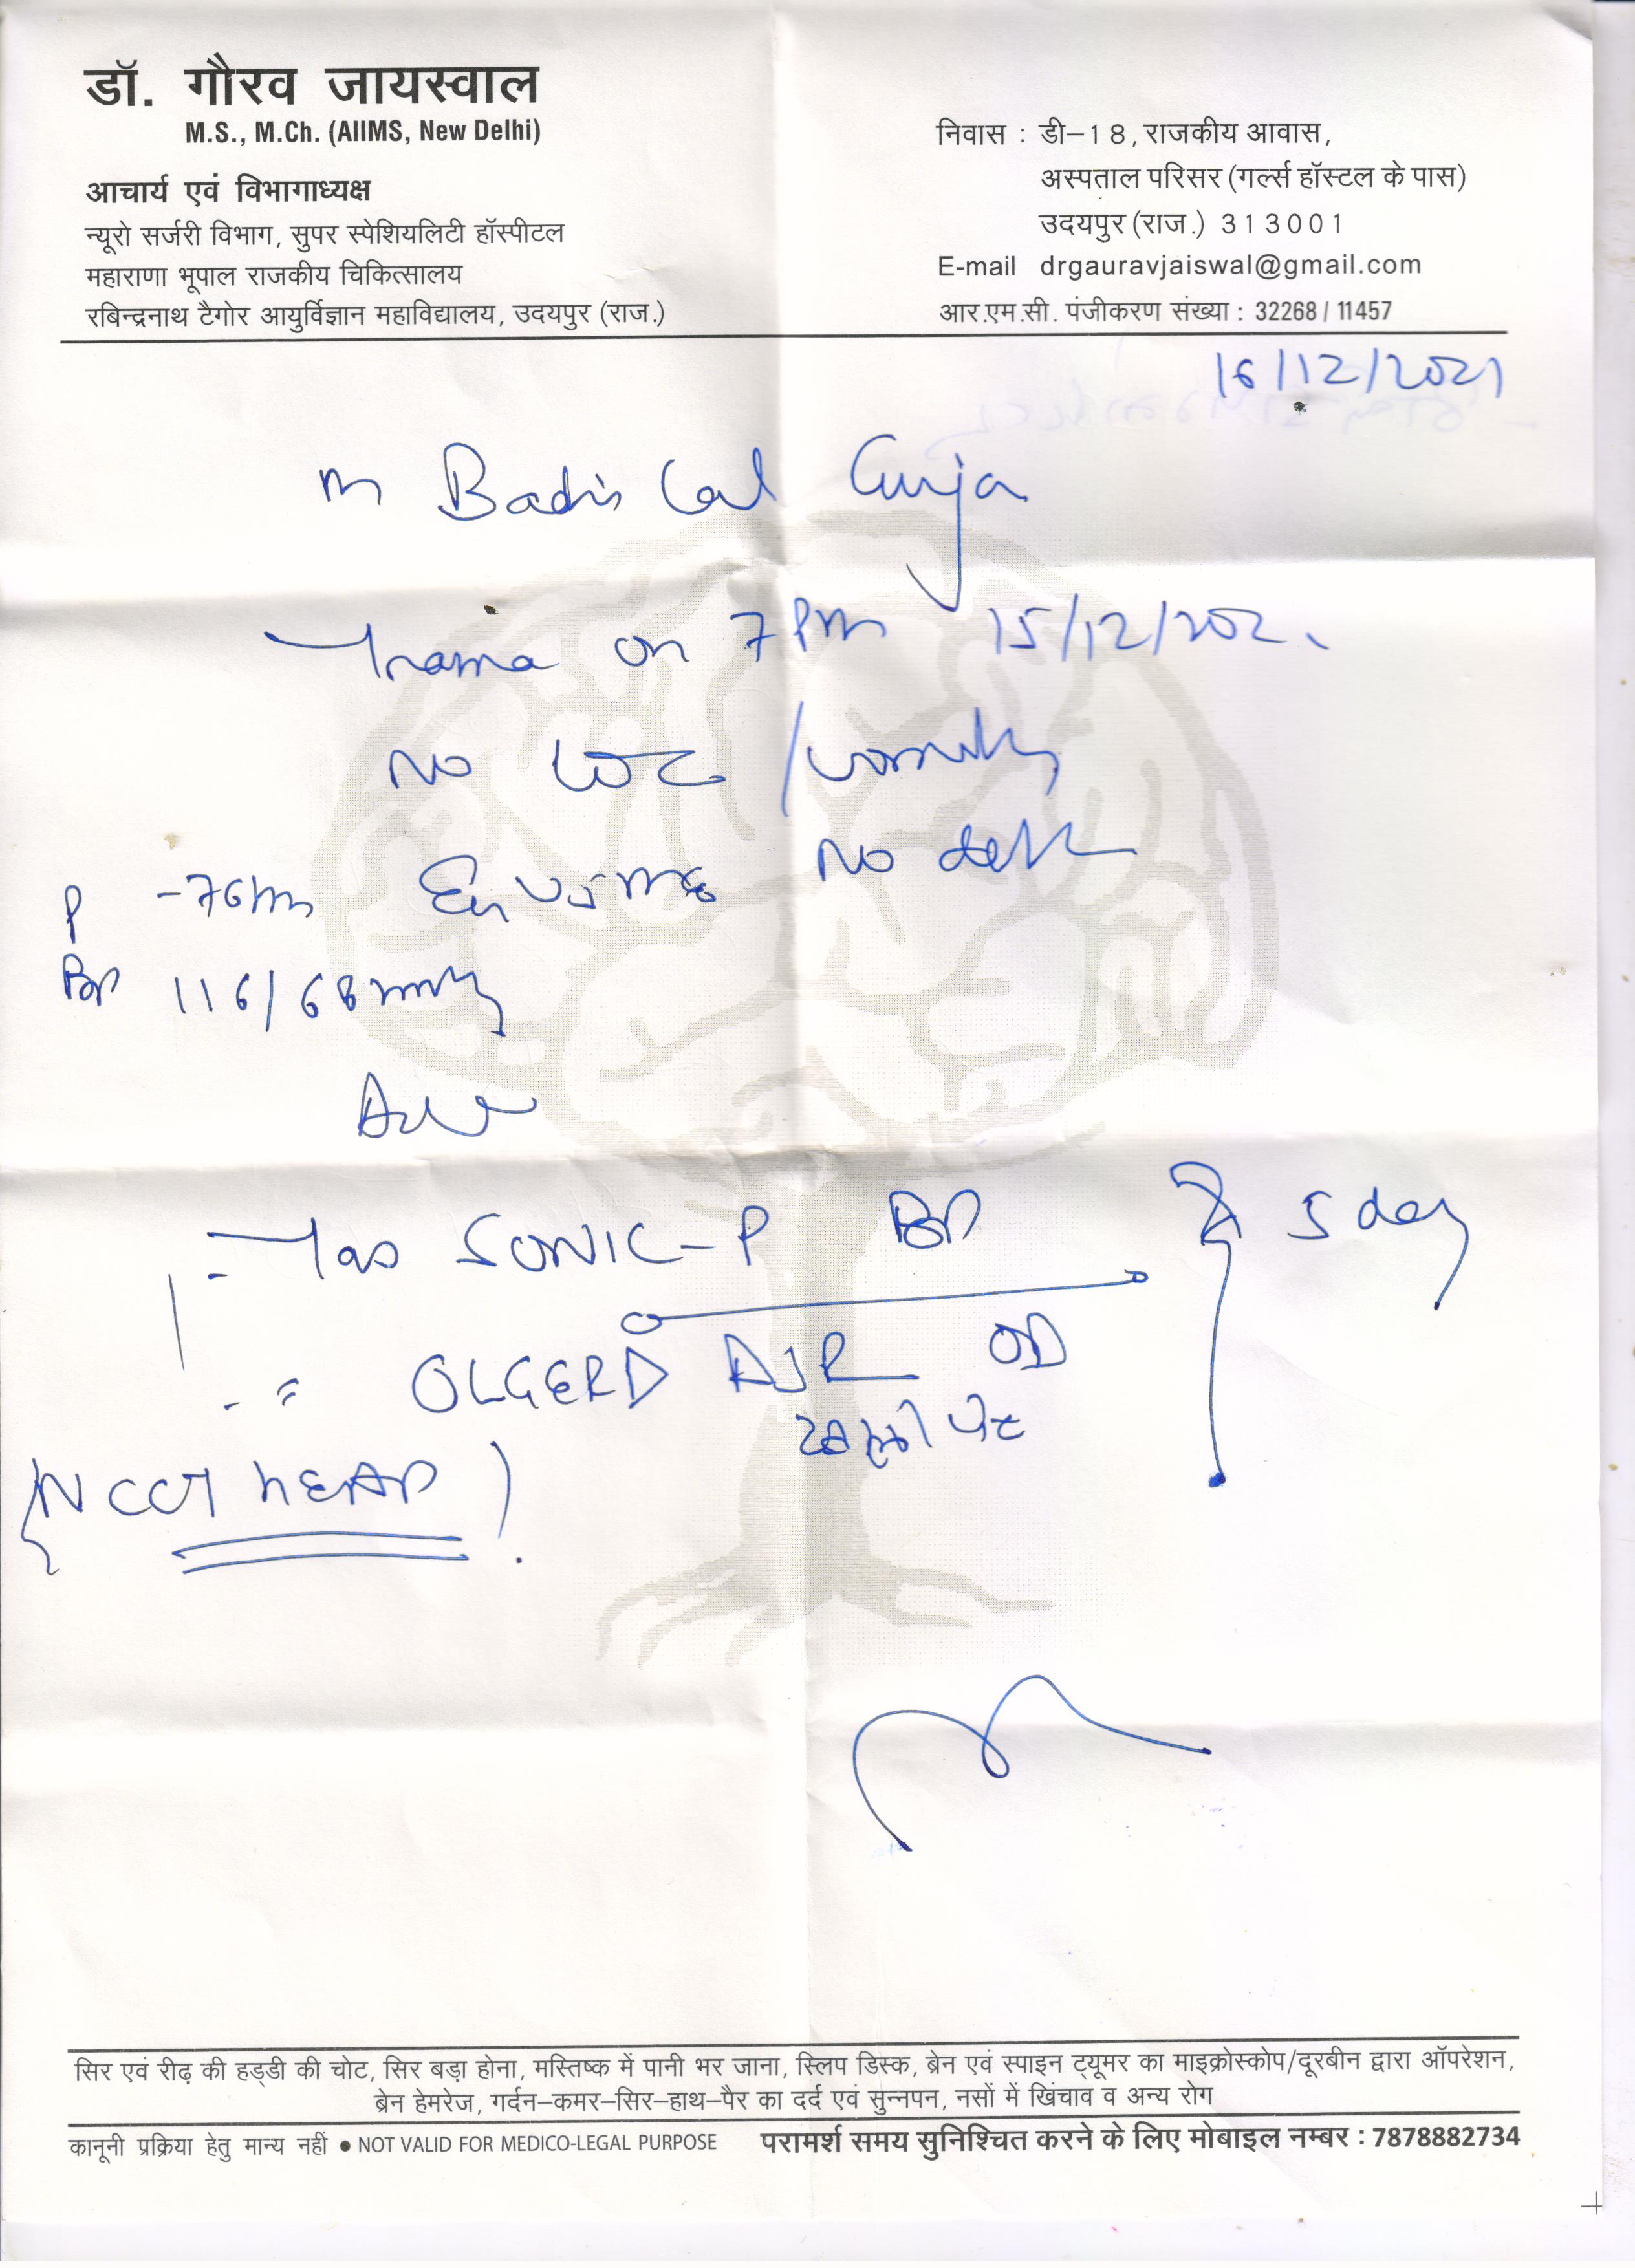 डॉ. गौरव जायस्वाल
M.S., M.Ch. (AIIMS, New Delhi)
आचार्य एवं विभागाध्यक्ष
न्यूरो सर्जरी विभाग, सुपर स्पेशियलिटी हॉस्पीटल
महाराणा भूपाल राजकीय चिकित्सालय
रबिन्द्रनाथ टैगोर आयुर्विज्ञान महाविद्यालय, उदयपुर (राज.)
निवास : डी-18, राजकीय आवास,
अस्पताल परिसर (गर्ल्स हॉस्टल के पास)
उदयपुर (राज.) 313001
E-mail drgauravjaiswal@gmail.com
आर.एम.सी. पंजीकरण संख्या : 32268 / 11457
16/12/2021
m Badri Lal Gurja
Trauma on 7 PM 15/12/202
no LOC / vomiting
P - 76/m E4V5M6 no
BP 116/68 mmHg
Adv
- Tab SONIC-P BD 5 day
- " OLGERD DSR OD
खाली पेट
NCCT HEAD
सिर एवं रीढ़ की हड्डी की चोट, सिर बड़ा होना, मस्तिष्क में पानी भर जाना, स्लिप डिस्क, ब्रेन एवं स्पाइन ट्यूमर का माइक्रोस्कोप/दूरबीन द्वारा ऑपरेशन,
ब्रेन हेमरेज, गर्दन-कमर-सिर-हाथ-पैर का दर्द एवं सुन्नपन, नसों में खिंचाव व अन्य रोग
कानूनी प्रक्रिया हेतु मान्य नहीं ● NOT VALID FOR MEDICO-LEGAL PURPOSE परामर्श समय सुनिश्चित करने के लिए मोबाइल नम्बर : 7878882734